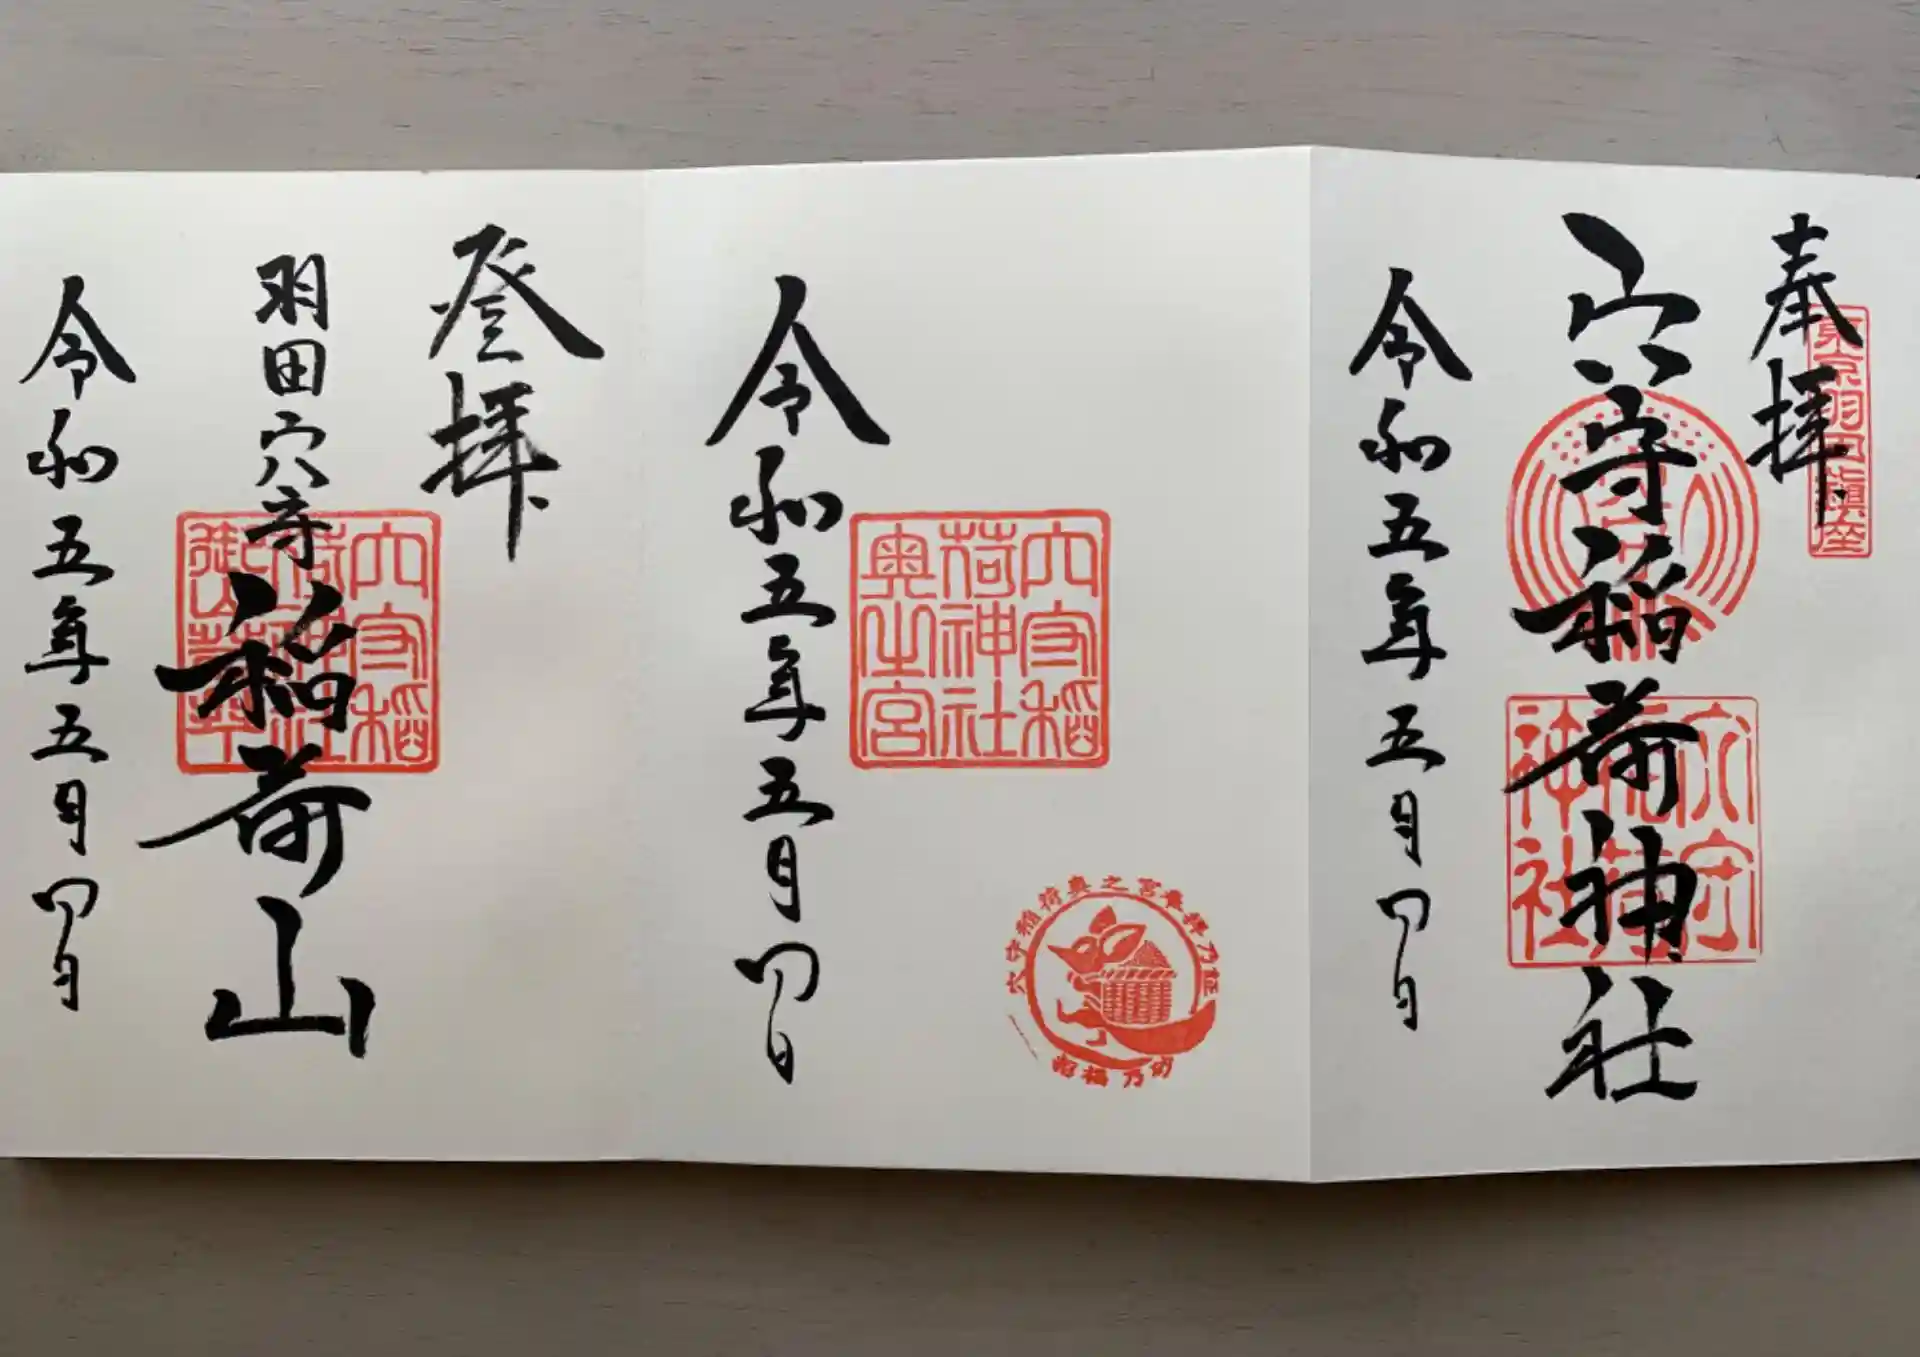 奉拝
東京羽田鎮座
穴守稲荷神社
穴守稲荷神社
令和五年五月四日
穴守稲荷神社奥之宮
令和五年五月四日
穴守稲荷奥之宮奉拝乃証
招福乃砂
登拝
羽田穴守稲荷山
令和五年五月四日